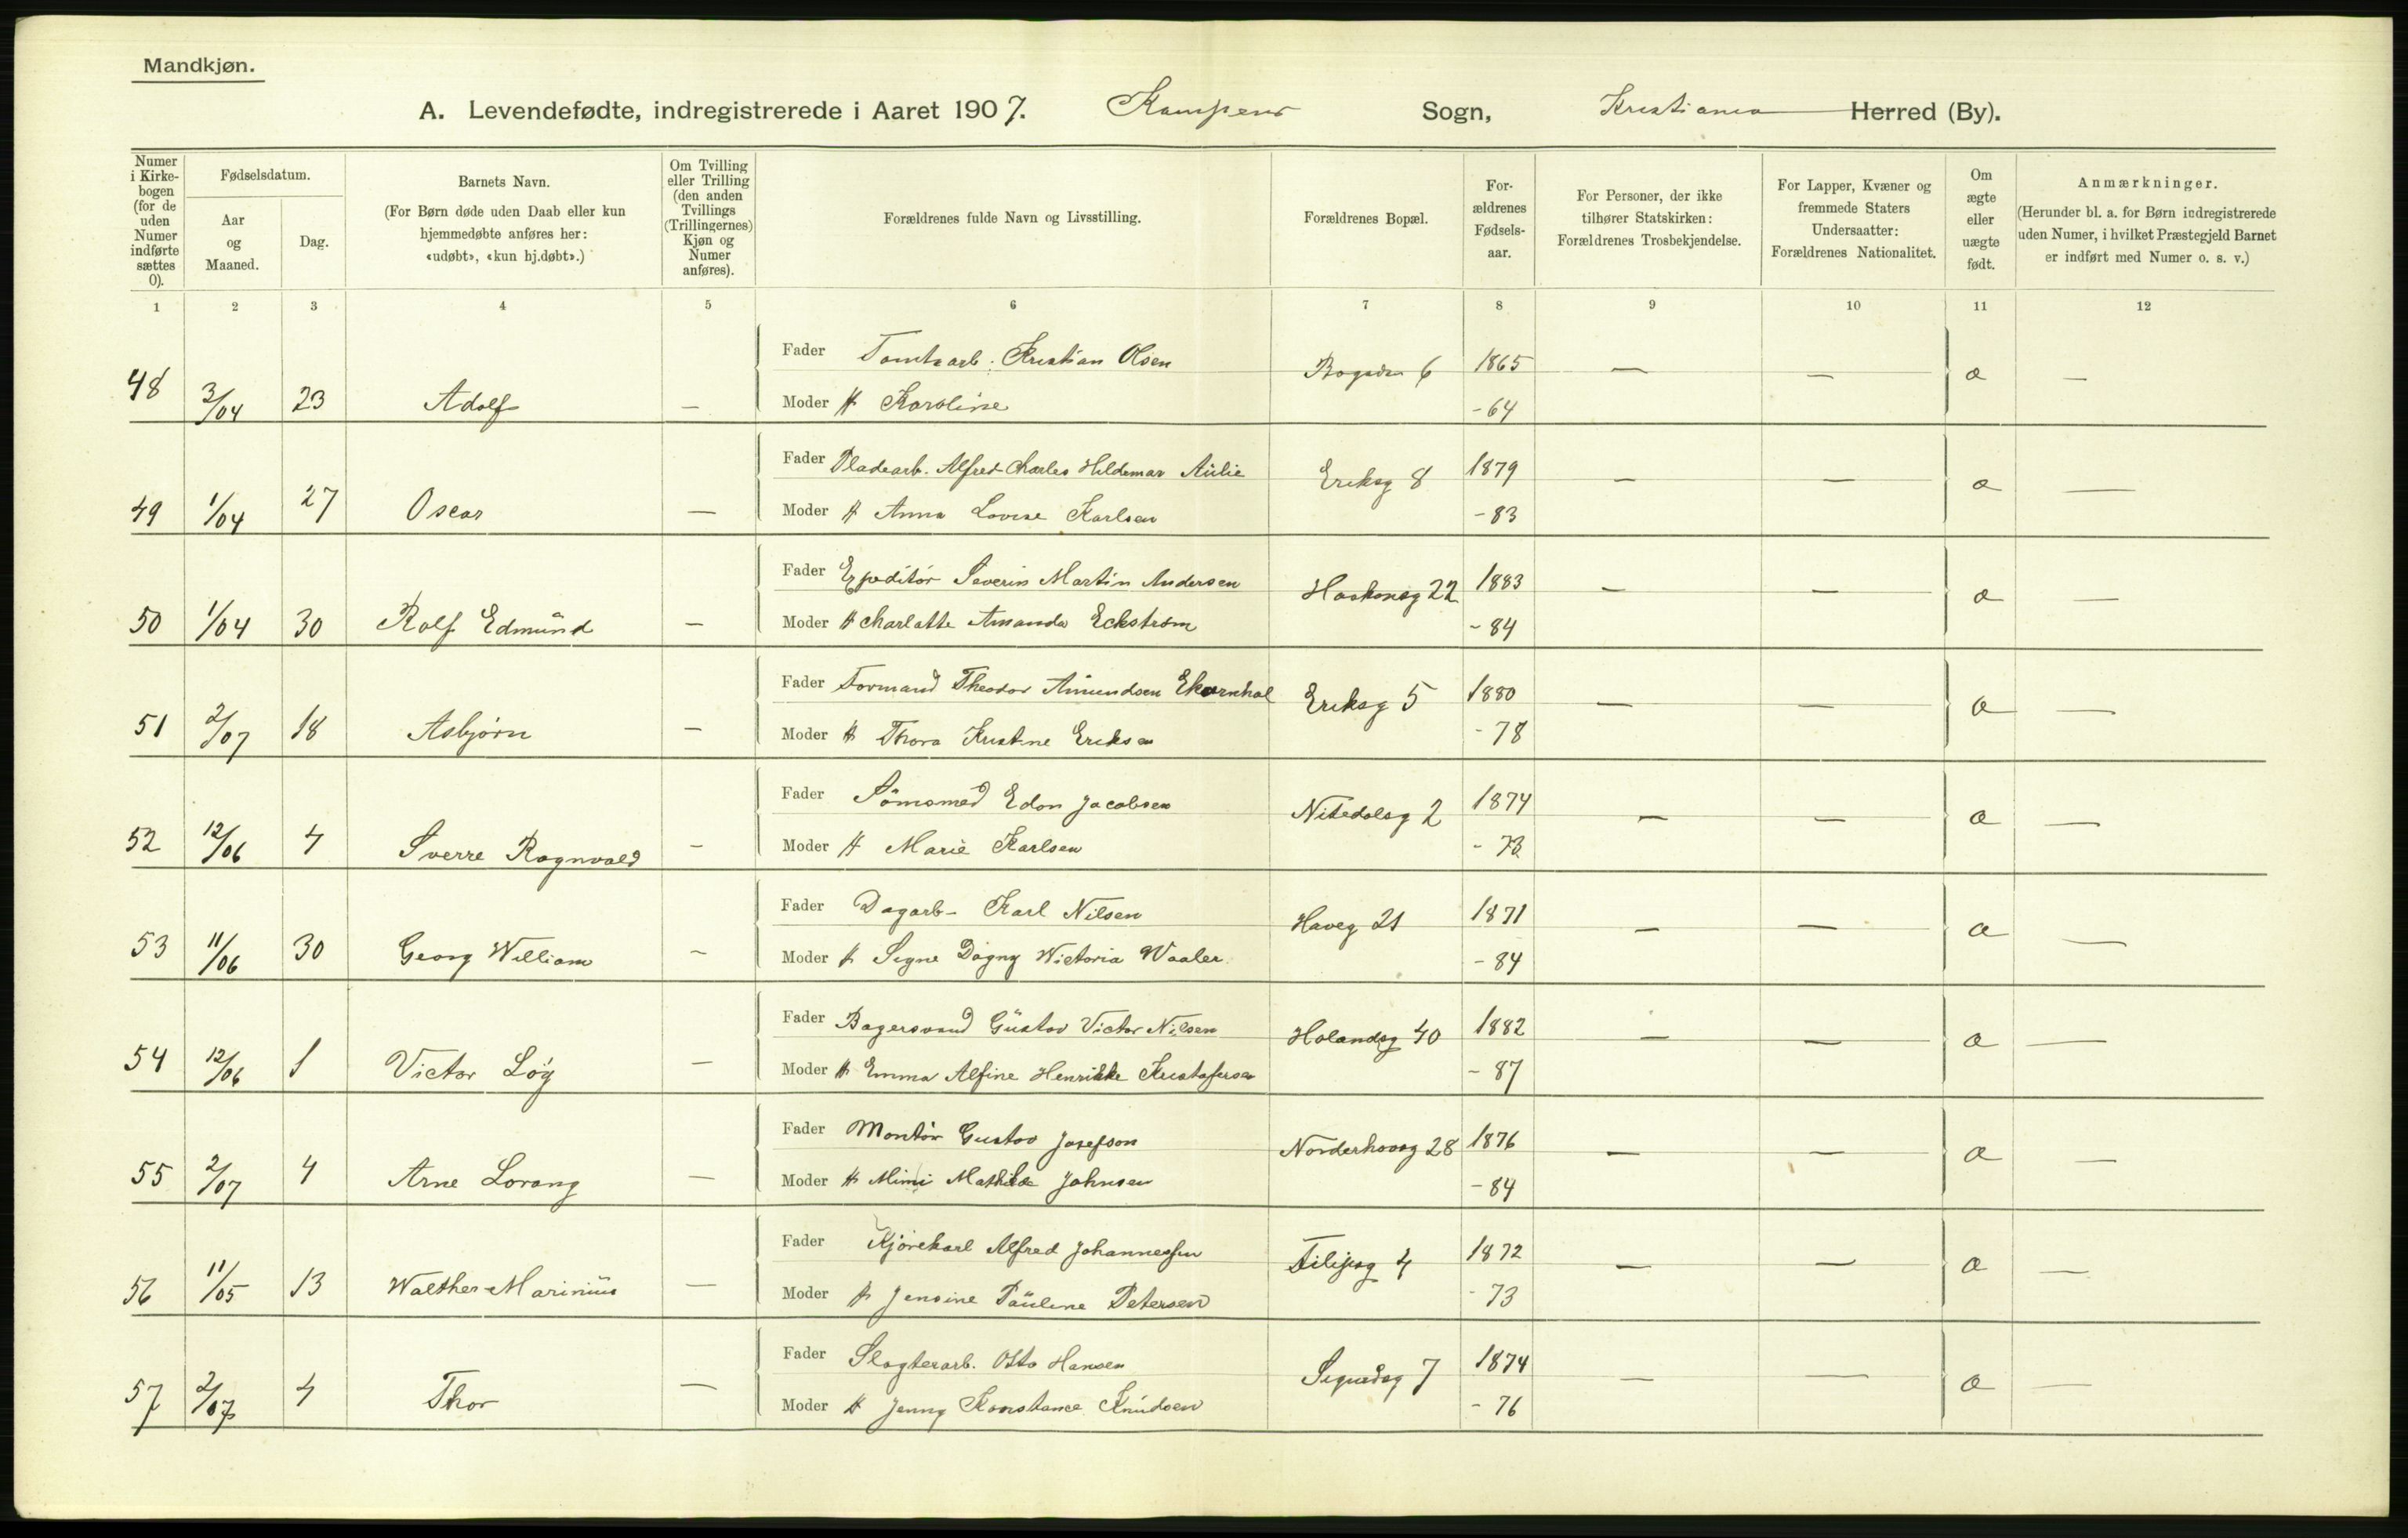 Mandkjøn.
A. Levendefødte, indregistrerede i Aaret 1907. Kampens Sogn, Kristiania Herred (By).
Numer i Kirkebogen (for de uden Numer indførte sættes 0).
Fødselsdatum.
Aar og Maaned.
Dag.
Barnets Navn.
(For Børn døde uden Daab eller kun hjemmedøbte anføres her: «udøbt», «kun hj.døbt».)
Om Tvilling eller Trilling (den anden Tvillings (Trillingernes) Kjøn og Numer anføres).
Forældrenes fulde Navn og Livsstilling.
Forældrenes Bopæl.
Forældrenes Fødselsaar.
For Personer, der ikke tilhører Statskirken: Forældrenes Trosbekjendelse.
For Lapper, Kvæner og fremmede Staters Undersaatter: Forældrenes Nationalitet.
Om ægte eller uægte født.
Anmærkninger.
(Herunder bl. a. for Børn indregistrerede uden Numer, i hvilket Præstegjeld Barnet er indført med Numer o. s. v.)
1 2 3 4 5 6 7 8 9 10 11 12
Fader Tomtearb. Kristian Olsen 6 1865 — — a —
48 3/04 23 Adolf — Moder H Karoline - 64
Fader Pladearb. Alfred Charles Hildemar Aulie Eriksg 8 1879 — — a —
49 1/04 27 Oscar — Moder H Anna Lovise Karlsen - 83
Fader Expeditör Severin Martin Andersen Haakonsg 22 1883 — — a —
50 1/04 30 Rolf Edmund — Moder H Charlotte Amanda Eckstrøm - 84
Fader Formand Theodor Amundsen Ekornhol Eriksg 5 1880 — — a —
51 2/07 18 Asbjørn — Moder H Thora Kristine Eriksen - 78
Fader Sömsmed Edon Jacobsen Nitedalsg 2 1874 — — a —
52 12/06 4 Sverre Ragnvald — Moder H Marie Karlsen - 73
Fader Dagarb - Karl Nilsen Haveg 21 1871 — — a —
53 11/06 30 Georg William — Moder H Signe Dagny Wictoria Waaler - 84
Fader Bagersvend Gustav Victor Nilsen Holandsg 40 1882 — — a —
54 12/06 1 Victor Löy — Moder H Emma Alfine Henrikke Kristofersen - 87
Fader Montör Gustav Josefson Norderhovsg 28 1876 — — a —
55 2/07 4 Arne Lorang — Moder H Mimi Mathilde Johnsen - 84
Fader Kjörekarl Alfred Johannessen Filipsg 4 1872 — — a —
56 11/05 13 Walther Marinius — Moder H Jensine Pauline Petersen - 73
Fader Slagterarb. Otto Hansen 7 1874 — — a —
57 2/07 4 Thor — Moder H Jenny Konstance Knudsen - 76